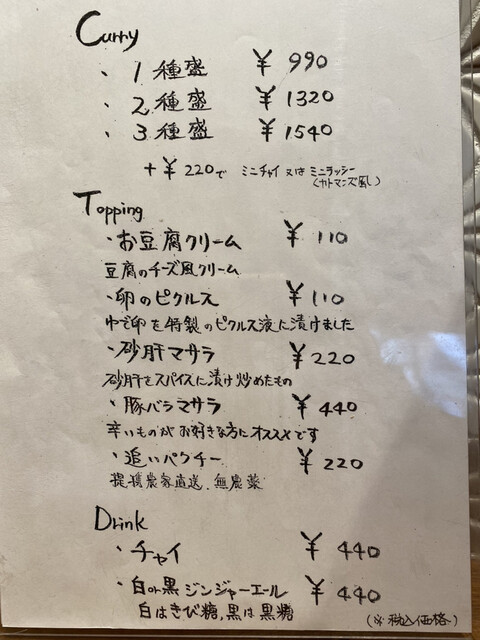 Curry
・1種盛 ¥990
・2種盛 ¥1320
・3種盛 ¥1540
+¥220で ミニチャイ又はミニラッシー
(カトマンズ風)
Topping
・お豆腐クリーム ¥110
豆腐のチーズ風クリーム
・卵のピクルス ¥110
ゆで卵を特製のピクルス液に漬けました
・砂肝マサラ ¥220
砂肝をスパイスに漬け炒めたもの
・豚バラマサラ ¥440
辛いものがお好きな方にオススメです
・追いパクチー ¥220
提携農家直送、無農薬
Drink
・チャイ ¥440
・白or黒ジンジャーエール ¥440
白はきび糖,黒は黒糖
(※税込価格)